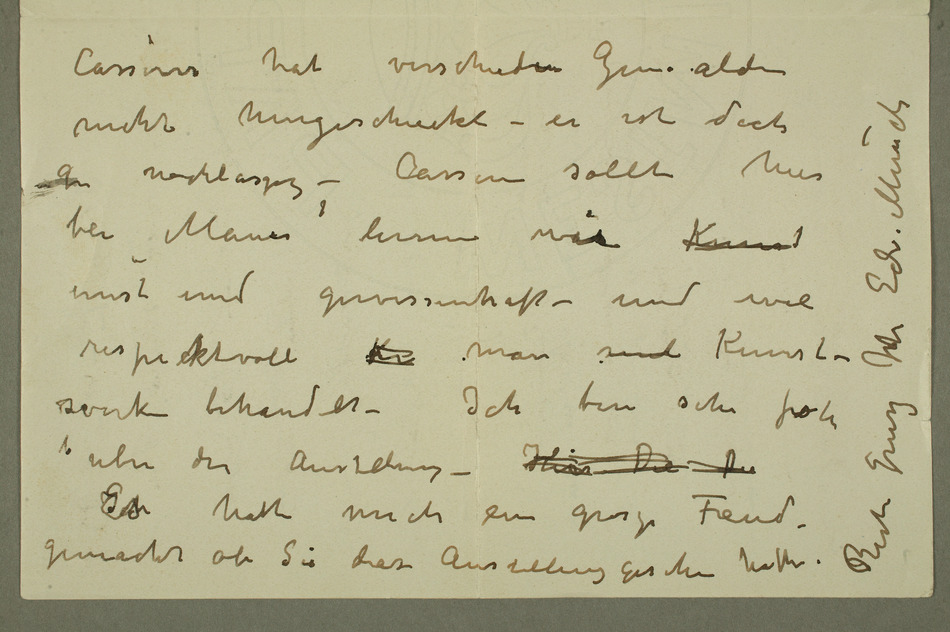 Cassirer hat verschieden Gemälden
nicht hingeschickt – er ist doch
nachlässig – Cassirer sollte hier
bei Manes lernen wie Kunst
ernst und gewissenhaft – und wie
respektvoll man Kunst-
werk behandelt – Ich bin sehr froh
über der Austellung –
Es hatte mich ein grosse Freud
gemacht ob Sie diese Ausstellung gesehn hatte.
Beste Gruss Ihr Edv. Munch